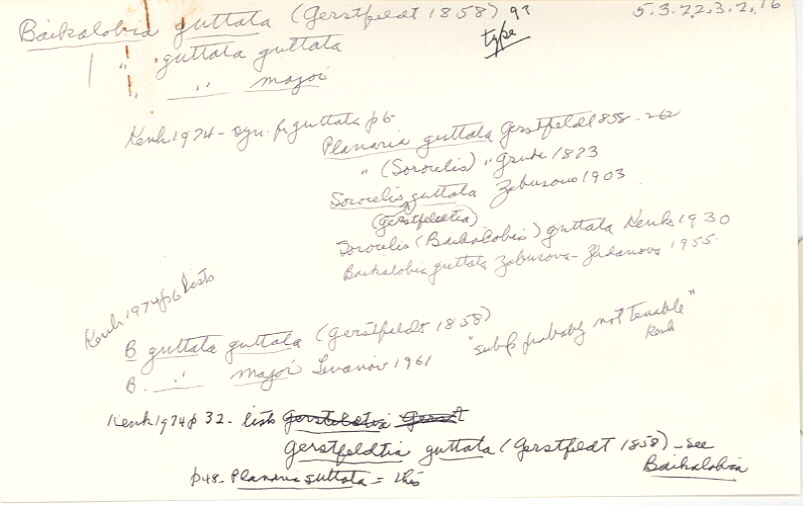 Baikalobia guttata (Gerstfeldt 1858) 9? 5.3.22.3.2.16
" guttata guttata type
" " major
Kenk 1974 - syn. for guttata p6
Planaria guttata Gerstfeldt 1858 - 262
" (Sorocelis) " Grube 1873
Sorocelis guttata Zabusova 1903
(Gerstfeldtia)
Sorocelis (Baikalobia) guttata Kenk 1930
Baikalobia guttata Zabusova-Zhdanova 1955
Kenk 1974 p6 lists
B guttata guttata (Gerstfeldt 1858)
B. " major Livanov 1961 "subsp probably not tenable"
Kenk
Kenk 1974 p 32 - lists
Gerstfeldtia guttata (Gerstfeldt 1858) - see
Baikalobia
p48 - Planaria guttata = this